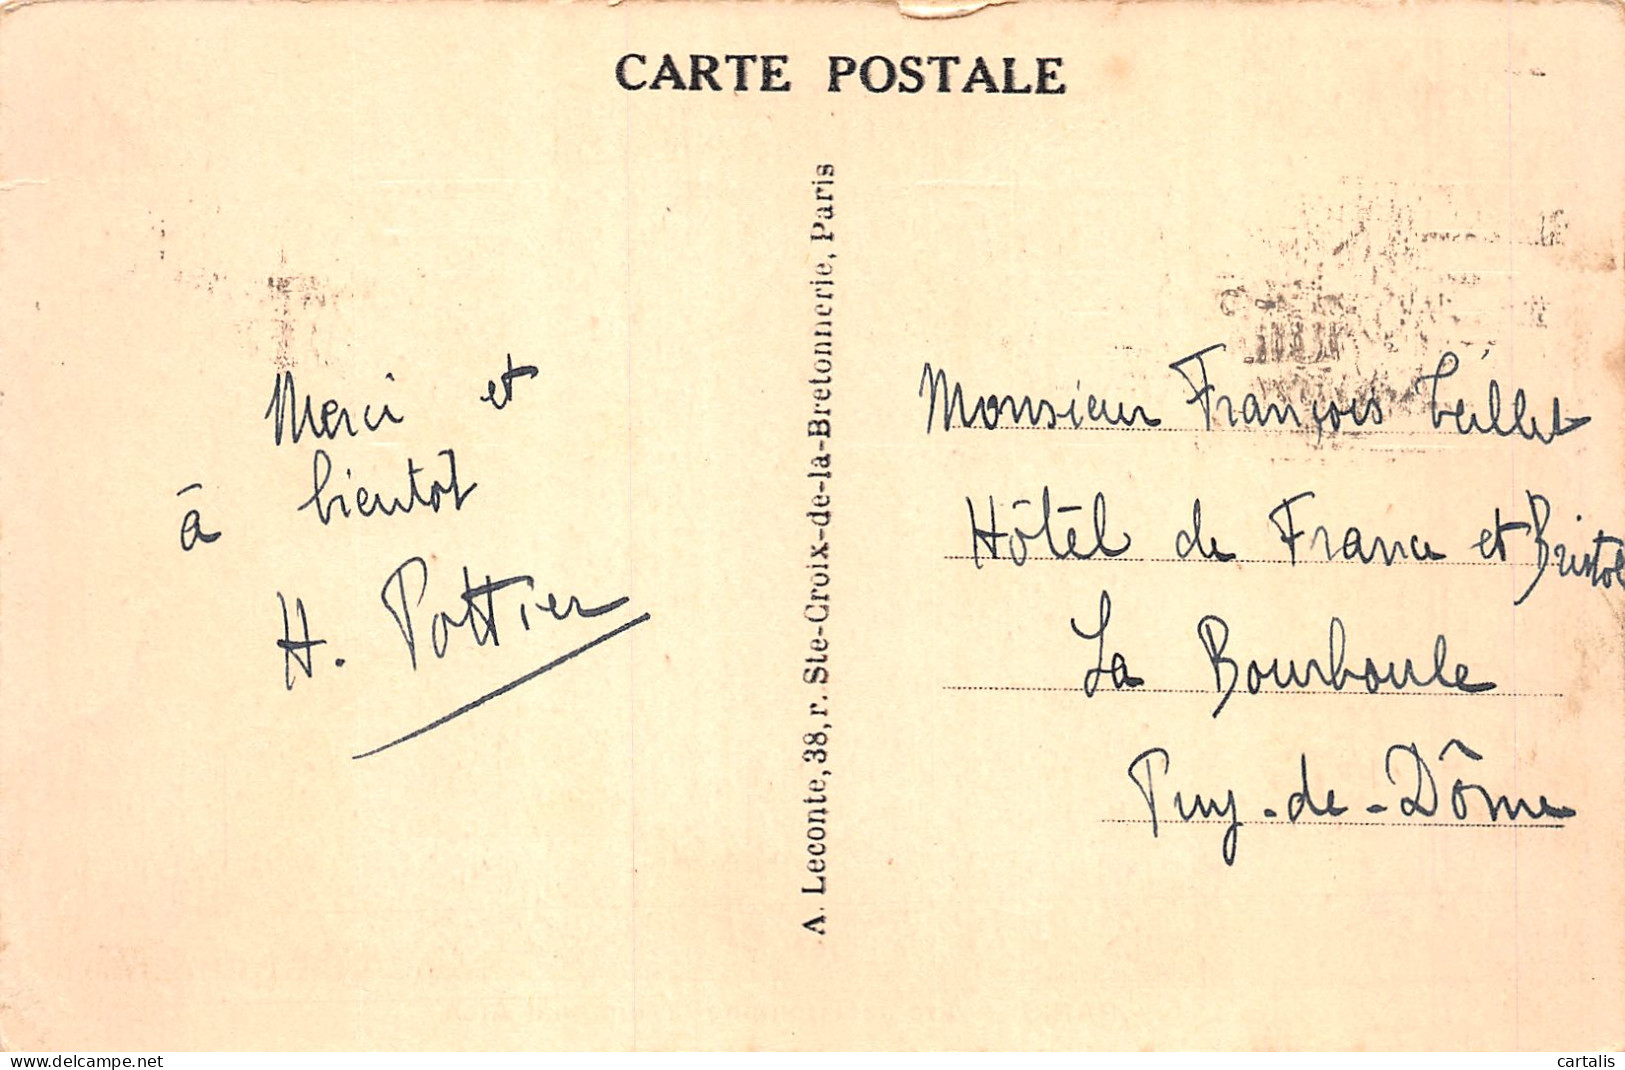 CARTE POSTALE
Merci et
à bientot
H. Pottier
A. Leconte, 38, r. Ste-Croix-de-la-Bretonnerie, Paris
Monsieur François
Hôtel de France et Bristol
La Bourboule
Puy-de-Dôme
www.delcampe.net
cartalis